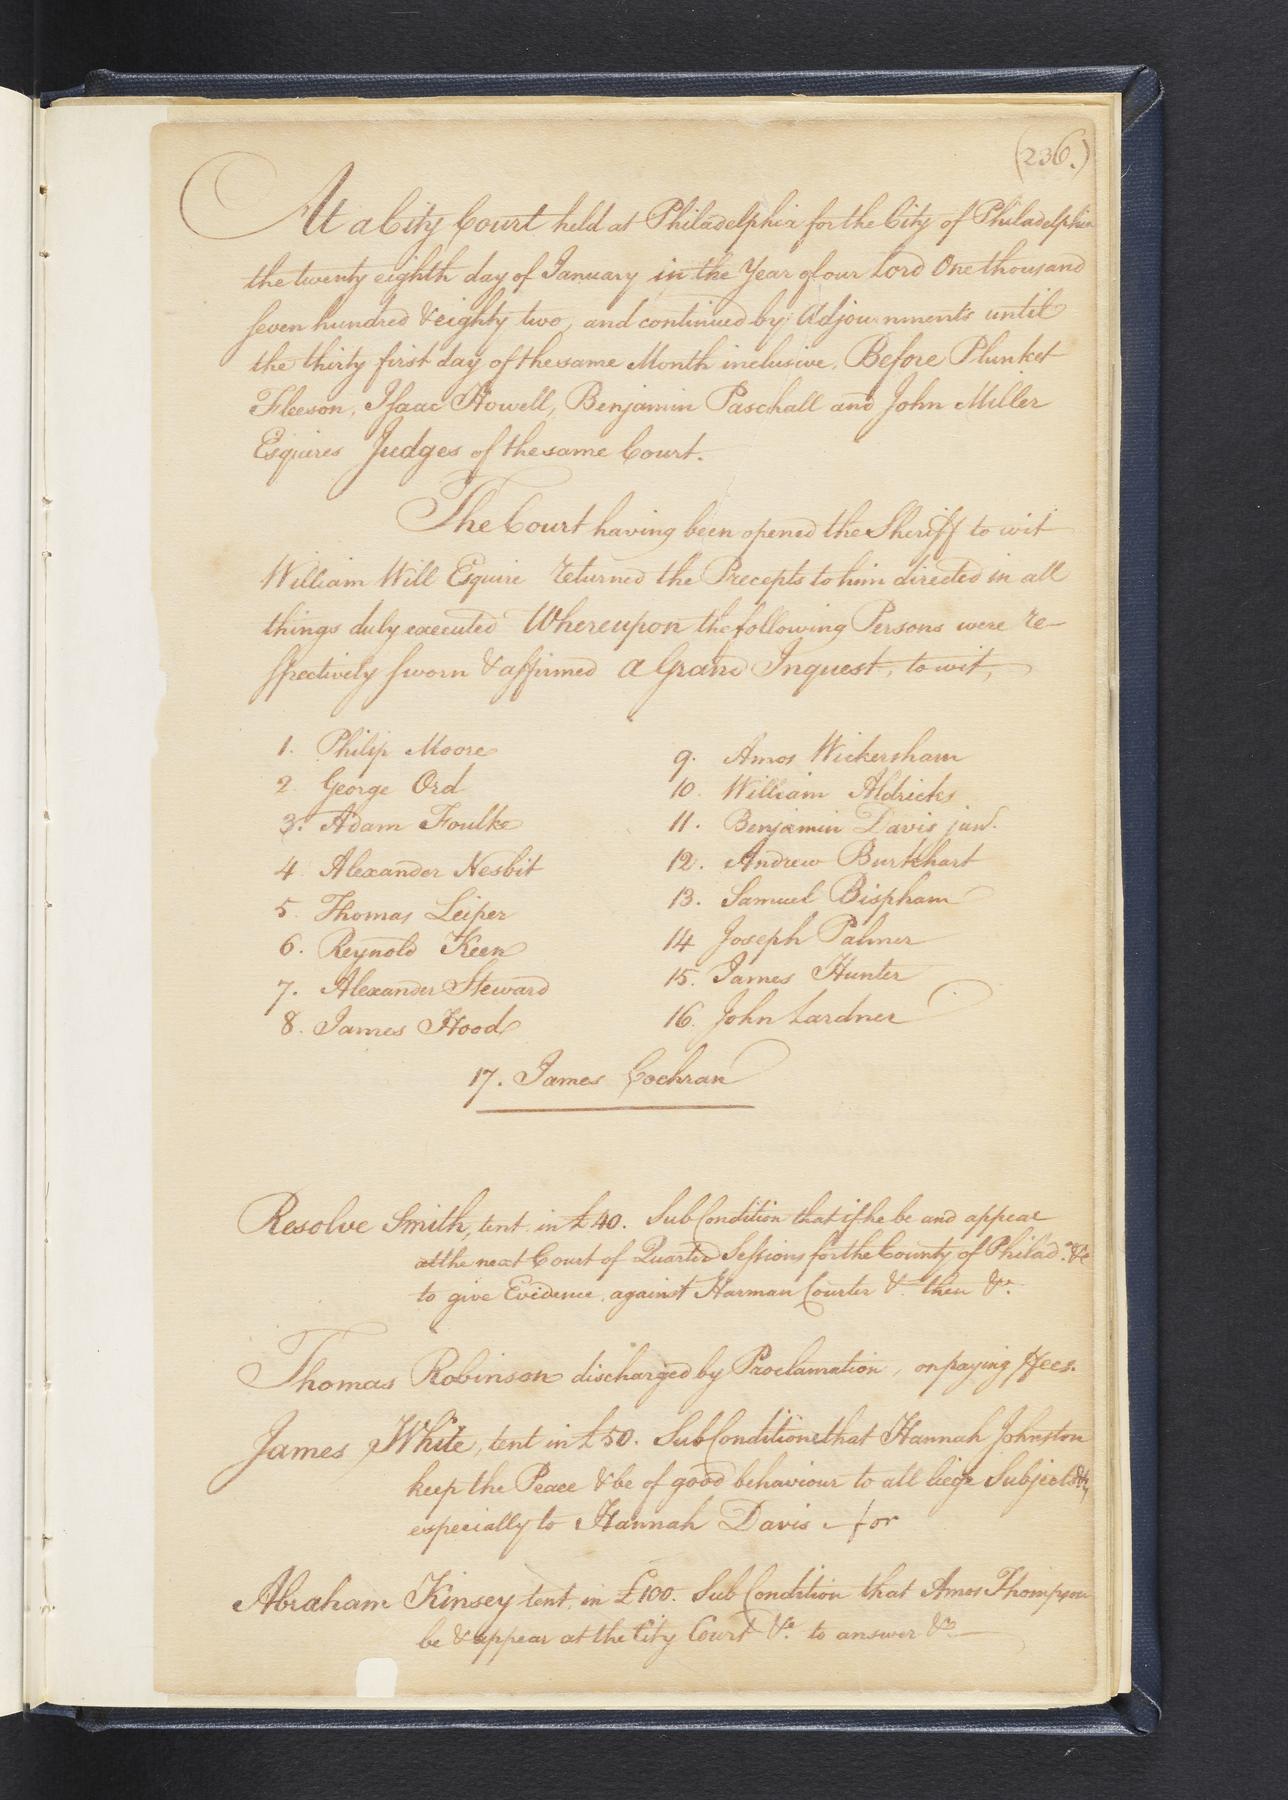 (236.)
At a City Court held at Philadelphia for the City of Philadelphia
the twenty eighth day of January in the Year of our Lord One thousand
seven hundred & eighty two, and continued by Adjournments until
the thirty first day of the same Month inclusive, Before Plunket
Fleeson, Isaac Howell, Benjamin Paschall and John Miller
Esquires Judges of the same Court.
The Court having been opened the Sheriff to wit
William Will Esquire returned the Precepts to him directed in all
things duly executed Whereupon the following Persons were re-
spectively sworn & affirmed a Grand Inquest, to wit,
1. Philip Moore
2. George Ord
3. Adam Foulke
4. Alexander Nesbit
5. Thomas Leiper
6. Reynold Keen
7. Alexander Steward
8. James Hood
9. Amos Wickersham
10. William Aldricks
11. Benjamin Davis junr.
12. Andrew Burkhart
13. Samuel Bispham
14 Joseph Palmer
15. James Hunter
16. John Lardner
17. James Cochran
Resolve Smith, tent. in £40. Sub Condition that if he be and appear
at the next Court of Quarter Sessions for the County of Philada. &c
to give Evidence against Harman Courter &c. then &c.
Thomas Robinson discharged by Proclamation, on paying ffees.
James White, tent in £50. Sub Condition that Hannah Johnston
keep the Peace & be of good behaviour to all liege Subjects &c,
especially to Hannah Davis for
Abraham Kinsey tent. in £100. Sub Condition that Amos Thompson
be & appear at the City Court &c. to answer &c